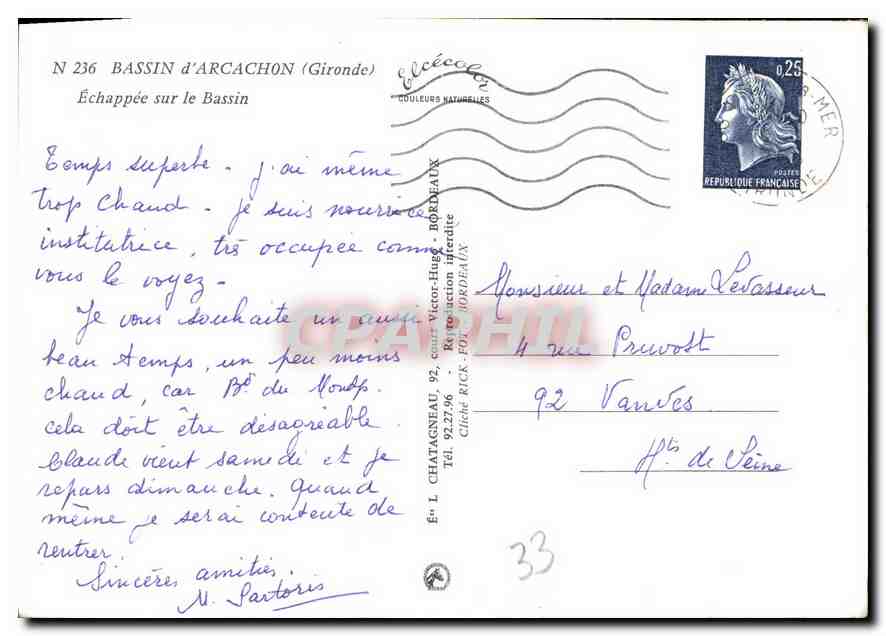 N 236 BASSIN d'ARCACHON (Gironde)
Échappée sur le Bassin
Temps superbe - j'ai même
trop chaud - je suis nourrice
institutrice, très occupée comme
vous le voyez -
Je vous souhaite un aussi
beau temps, un peu moins
chaud, car Bd du Montp.
cela doit être désagréable.
Claude vient samedi et je
repars dimanche. Quand
même je serai contente de
rentrer.
Sincères amitiés.
M. Sartoris
Elcécolor
COULEURS NATURELLES
Éts L CHATAGNEAU, 92, cours Victor-Hugo - BORDEAUX
Tél. 92.27.96 - Reproduction interdite
Cliché RICK-FOT BORDEAUX
0,25
POSTES
REPUBLIQUE FRANÇAISE
MER
GIRONDE
Monsieur et Madame Levasseur
4 rue Pruvost
92 Vanves
Hts de Seine
33
CPAPHIL